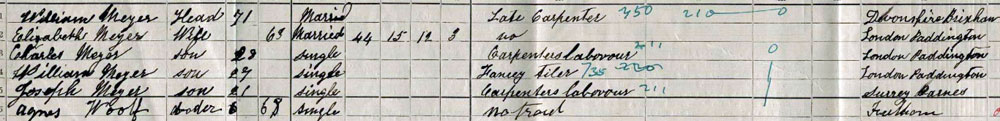 William Meyer Head 71 Married Late Carpenter 350 210 0 Devonshire Brixham
2 Elizabeth Meyer Wife 63 Married 44 15 12 3 no London Paddington
Charles Meyer son 28 single Carpenters labovour 211 0 London Paddington
4 William Meyer son 27 single Fancey tiler London Paddington
Joseph Meyer son 21 single Carpenters labovour 211 Surrey Barnes
Agnes Woolf 68 single no traid